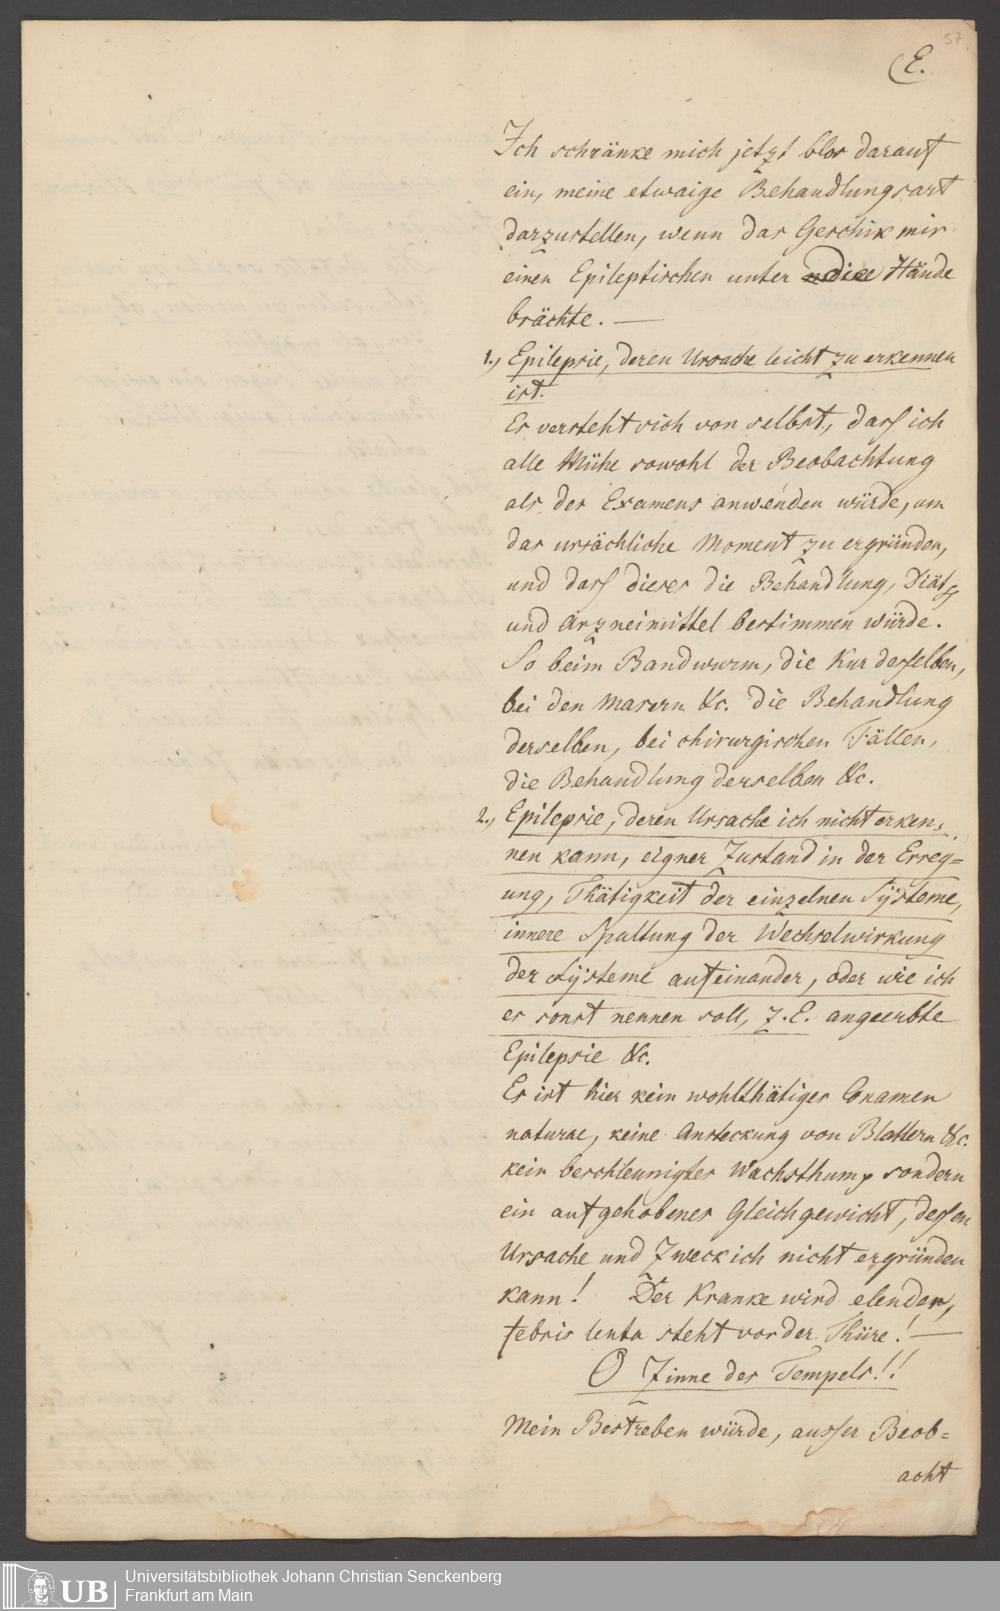 57
E.
Ich schränke mich jetzt blos darauf
ein, meine etwaige Behandlungsart
darzustellen, wenn das Geschik mir
einen Epileptischen unter die Hände
brächte. —
1., Epilepsie, deren Ursache leicht zu erkennen
ist.
Es versteht sich von selbst, dass ich
alle Mühe sowohl der Beobachtung
als des Examens anwenden würde, um
das ursächliche Moment zu ergründen,
und dass dieses die Behandlung, Diät
und Arzneimittel bestimmen würde.
So beim Bandwurm, die Kur desselben,
bei den Masern &c. die Behandlung
derselben, bei chirurgischen Fällen,
die Behandlung derselben &c.
2., Epilepsie, deren Ursache ich nicht erken,
nen kann, eigner Zustand in der Erreg=
ung, Thätigkeit der einzelnen Systeme,
innere Spaltung der Wechselwirkung
der Systeme aufeinander, oder wie ich
es sonst nennen soll, z. E. angeerbte
Epilepsie &c.
Es ist hier kein wohlthätiges Conamen
naturae, keine Ansteckung von Blattern &c.
kein beschleunigtes Wachsthum, sondern
ein aufgehobenes Gleichgewicht, dessen
Ursache und Zweck ich nicht ergründen
kann! Der Kranke wird elender,
febris lenta steht vor der Thüre! —
O Zinne des Tempels!!
Mein Bestreben würde, ausser Beob=
acht
UB
Universitätsbibliothek Johann Christian Senckenberg
Frankfurt am Main